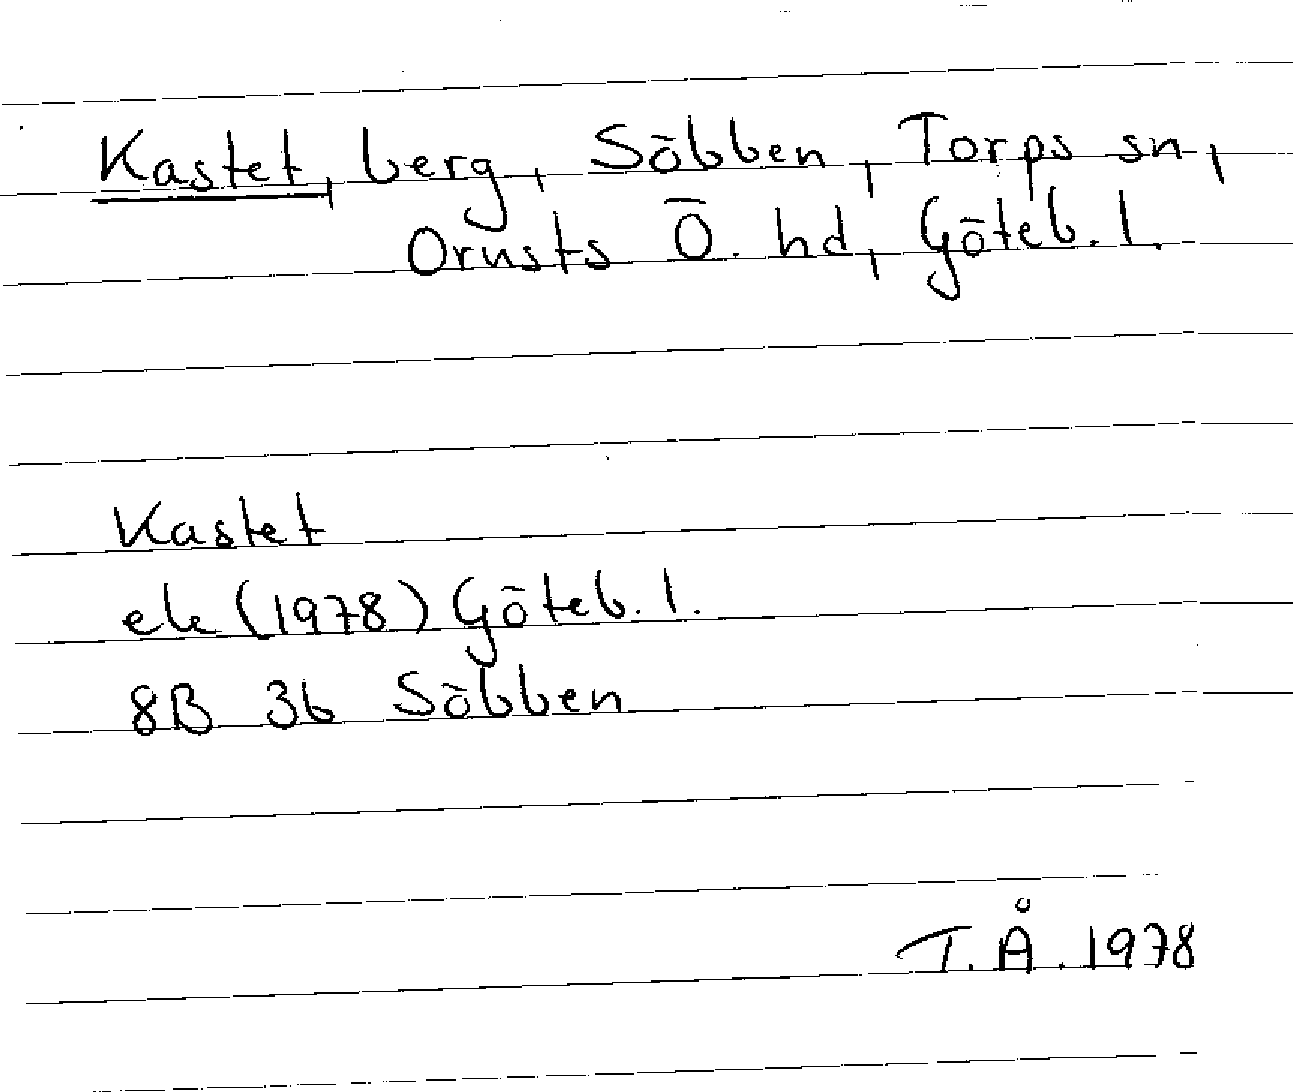 Kastet, berg, Söbben, Torps sn,
Orusts Ö. hd, Göteb. l.
Kastet
ek (1978) Göteb. l.
8B 3b Söbben
T. Å. 1978